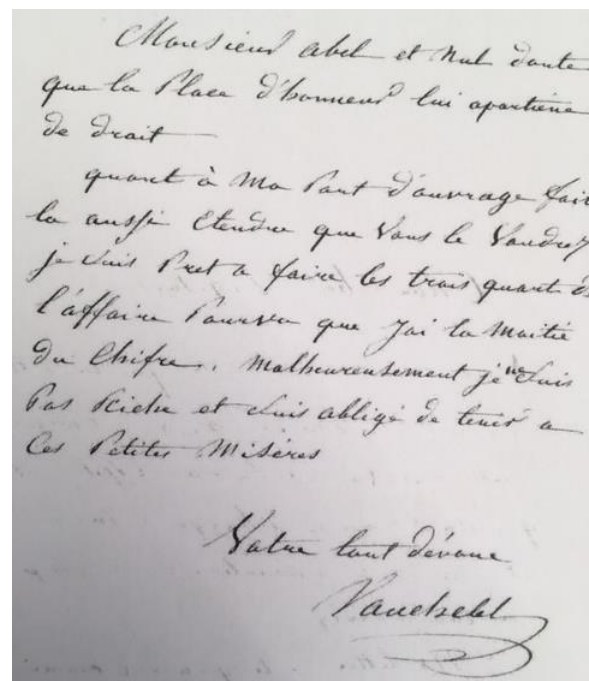 Monsieur Abel et Nul doute
que la Place d'honneur lui apartiene
de droit
quant à Ma Part d'ouvrage fair
la aussi Etendue que Vous le Voudrez
je Suis Pret a faire les trois quart de
l'affaire Pourvu que J'ai la Moitié
du Chifre. Malheureusement je ne Suis
Pas Riche et Suis obligé de tenir a
Ces Petites Miséres
Votre tout dévoué